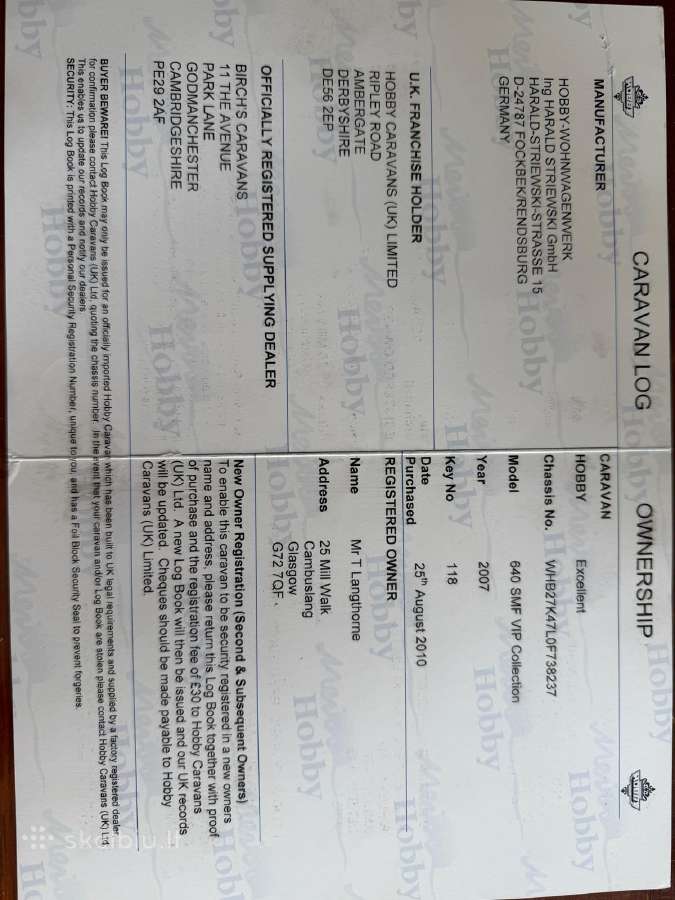 CARAVAN LOG OWNERSHIP
MANUFACTURER
HOBBY-WOHNWAGENWERK
Ing HARALD STRIEWSKI GmbH
HARALD-STRIEWSKI-STRASSE 15
D-24787 FOCKBEK/RENDSBURG
GERMANY
U.K. FRANCHISE HOLDER
HOBBY CARAVANS (UK) LIMITED
RIPLEY ROAD
AMBERGATE
DERBYSHIRE
DE56 2EP
OFFICIALLY REGISTERED SUPPLYING DEALER
BIRCH'S CARAVANS
11 THE AVENUE
PARK LANE
GODMANCHESTER
CAMBRIDGESHIRE
PE29 2AF
CARAVAN
HOBBY Excellent
Chassis No. WHB27K47L0F738237
Model 640 SMF VIP Collection
Year 2007
Key No 118
Date
Purchased 25th August 2010
REGISTERED OWNER
Name Mr T Langthorne
Address 25 Mill Walk
Cambuslang
Glasgow
G72 7QF.
New Owner Registration (Second & Subsequent Owners)
To enable this caravan to be security registered in a new owners
name and address, please return this Log Book together with proof
of purchase and the registration fee of £30 to Hobby Caravans
(UK) Ltd. A new Log Book will then be issued and our UK records
will be updated. Cheques should be made payable to Hobby
Caravans (UK) Limited.
BUYER BEWARE! This Log Book may only be issued for an officially imported Hobby Caravan which has been built to UK legal requirements and supplied by a factory registered dealer
for confirmation please contact Hobby Caravans (UK) Ltd. quoting the chassis number. In the event that your caravan and/or Log Book are stolen please contact Hobby Caravans (UK) Ltd
This enables us to update our records and notify our dealers.
SECURITY: This Log Book is printed with a Personal Security Registration Number, unique to you, and has a Foil Block Security Seal to prevent forgeries.
Hobby
skelbiu.lt